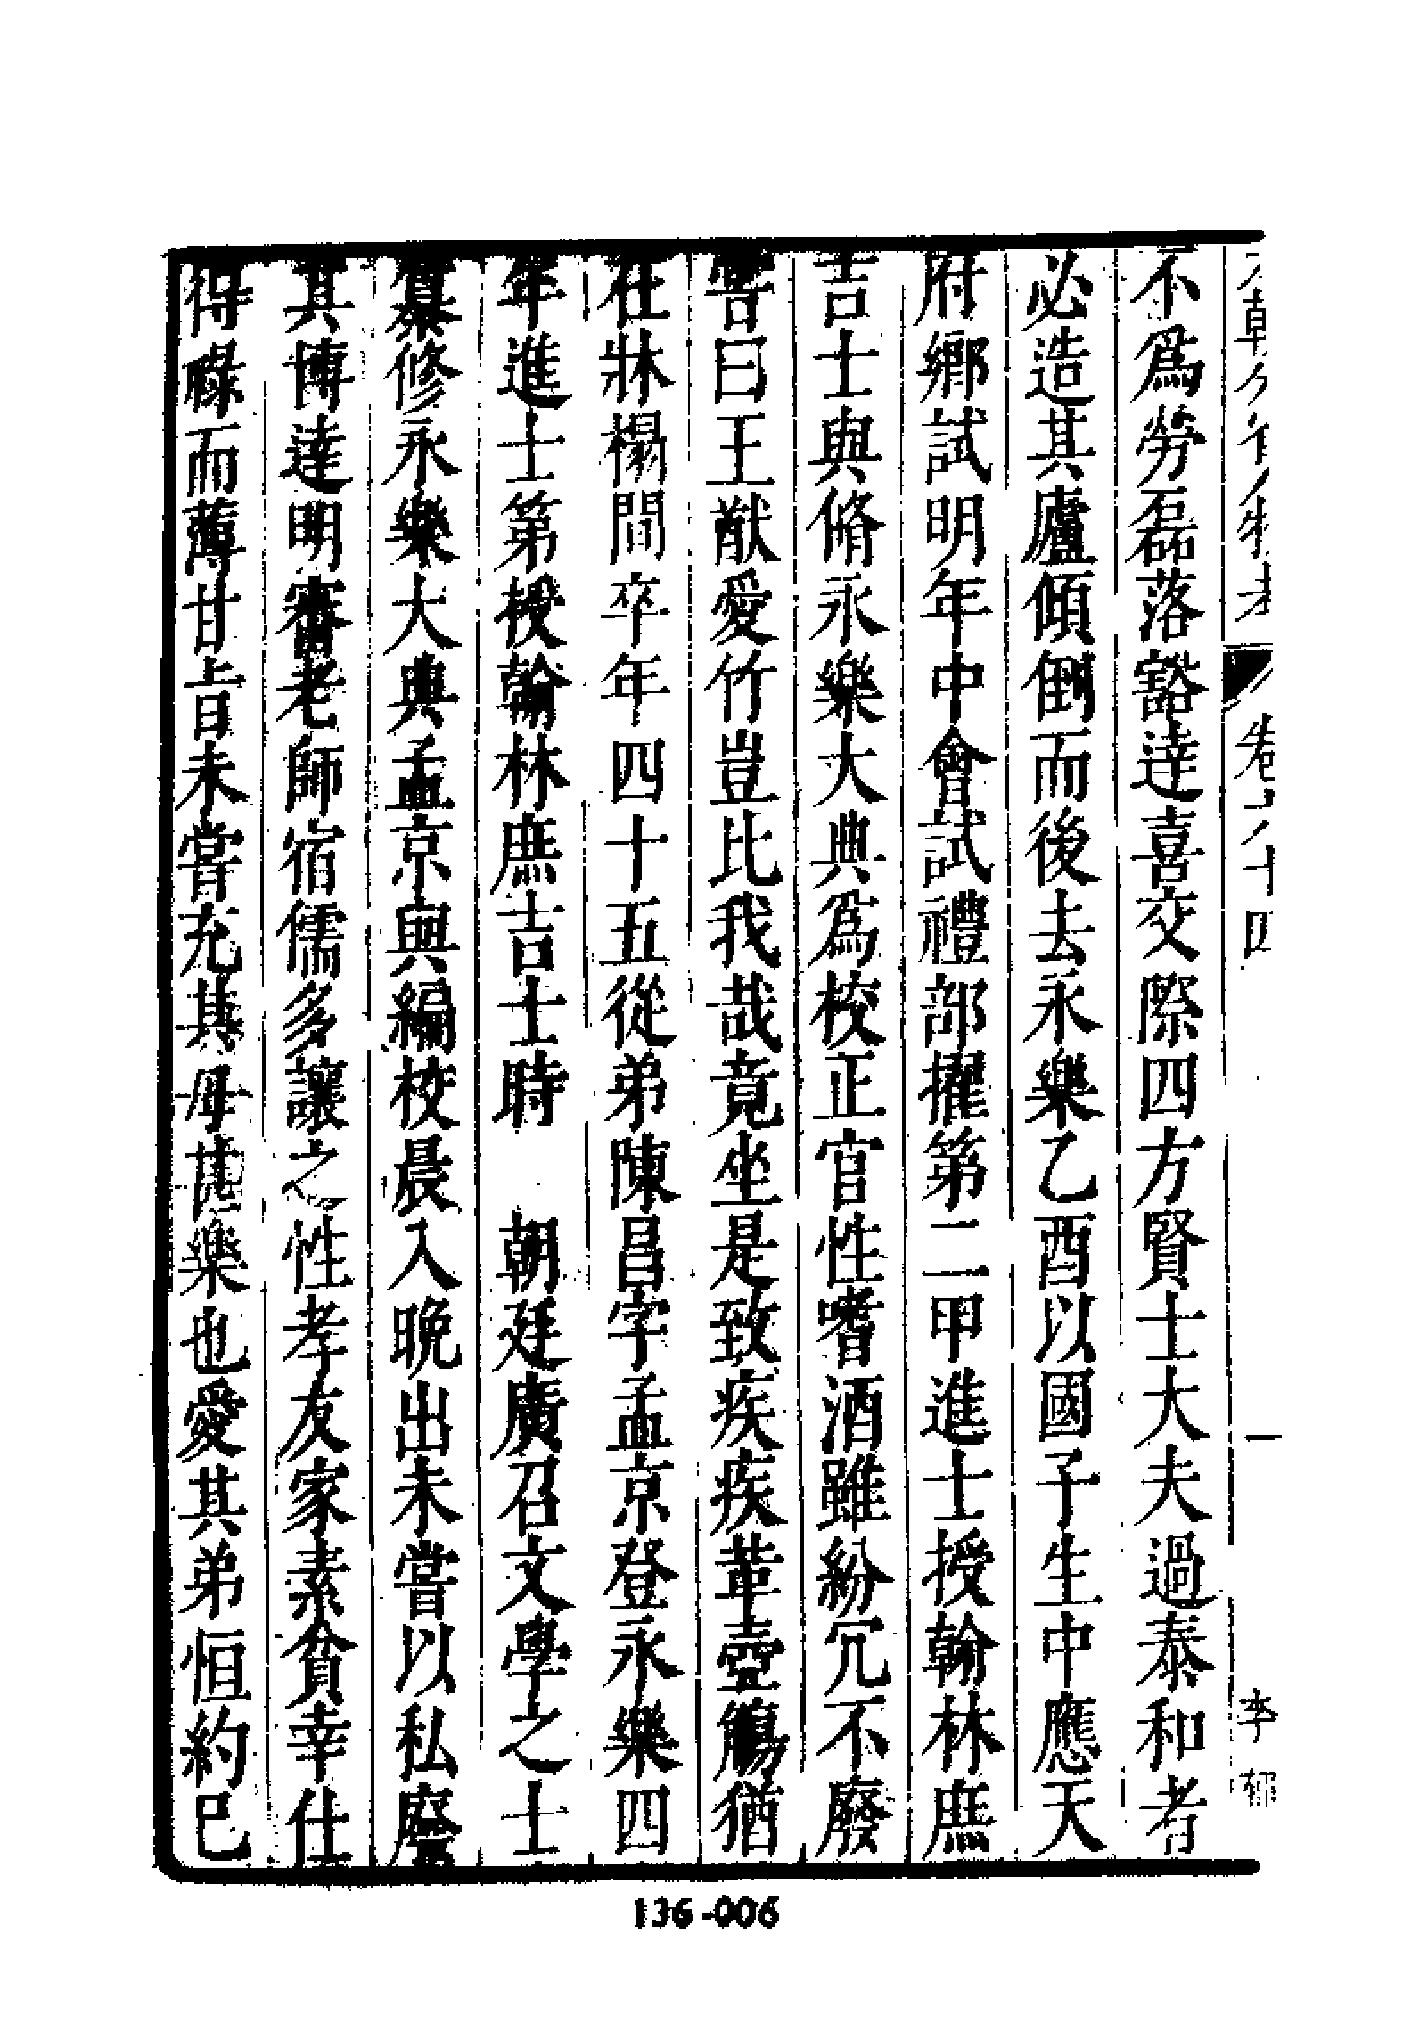 卷六十四
一
李郁
不爲勞磊落豁達喜交際四方賢士大夫過泰和者
必造其廬傾倒而後去永樂乙酉以國子生中應天
府鄉試明年中會試禮部擢第二甲進士授翰林庶
吉士與脩永樂大典爲校正官性嗜酒雖紛冗不廢
嘗曰王猷愛竹豈比我哉竟坐是致疾疾革壺觴猶
在牀榻間卒年四十五從弟陳昌字孟京登永樂四
年進士第授翰林庶吉士時　朝廷廣召文學之士
纂修永樂大典孟京與編校晨入晚出未嘗以私廢
其博達明審老師宿儒多讓之性孝友家素貧幸仕
得祿而薄甘旨未嘗充其母甚樂也愛其弟恒約已
136-006